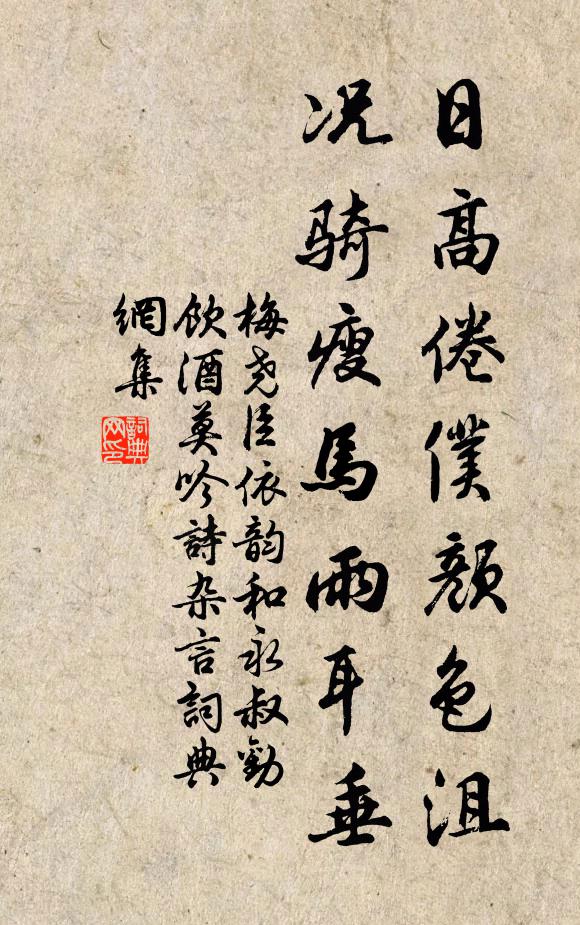 日高倦僕顔色沮
况骑瘦馬兩耳垂
梅尧臣依韵和永叔勸
飲酒莫吟詩杂言詞典
網集
詞典
网印